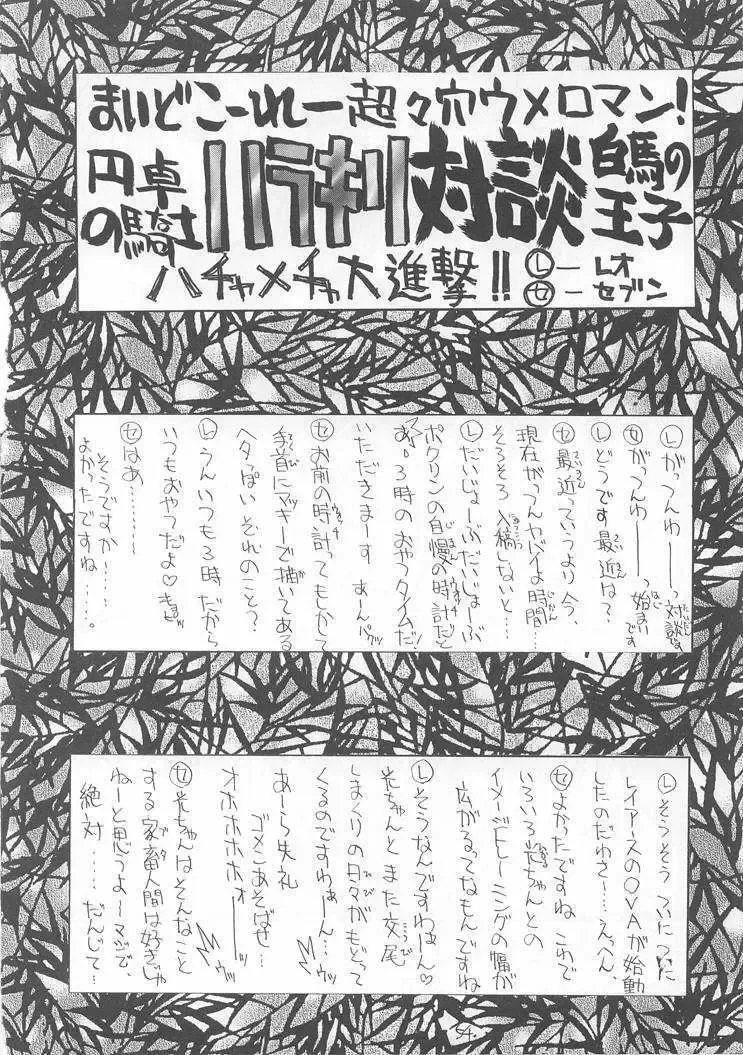 まいどこーれー超々穴ウメロマン!
円卓の騎士 ハラキリ対談 白馬の王子
ハチャメチャ大進撃!!
Ⓛ— レオ
㋝— セブン
Ⓛがっつんわ——っ対談は、
㋝がっつんわ——っ始まいです
Ⓛどうです最近は?
㋝最近っていうより今、
現在がっつんヤバイよ時間…
そろそろ入稿しないと……
Ⓛだいじょーぶだいじょーぶ
ポクリンの自慢の時計だと
あっ。3時のおやつタイムだ!
いただきまーす あーんパクッ
㋝お前の時計ってもしかして
手首にマッキーで描いてある
ヘタっぴい それのこと?
Ⓛうんいつも3時だから
いつもおやつだよ♡
㋝はあ……………
そうですか……
よかったですね……。
Ⓛそうそう ついに ついに
レイアースのOVAが始動
したのだわさ!…えっへん、
㋝よかったですね これで
いろいろ光ちゃんとの
イメージトレーニングの幅が
広がるってなもんですね
Ⓛそうなんですわほーん♡
光ちゃんとまた交尾
しまくりの日々がもどって
くるのですわぁーん…ウッ
あーら失礼
ゴメンあそばせ…
オホホホホォ———ウッ
㋝光ちゃんはそんなこと
する家畜人間は好きじゃ
ねーと思うよーマジで、
絶対……だんじて…
54.